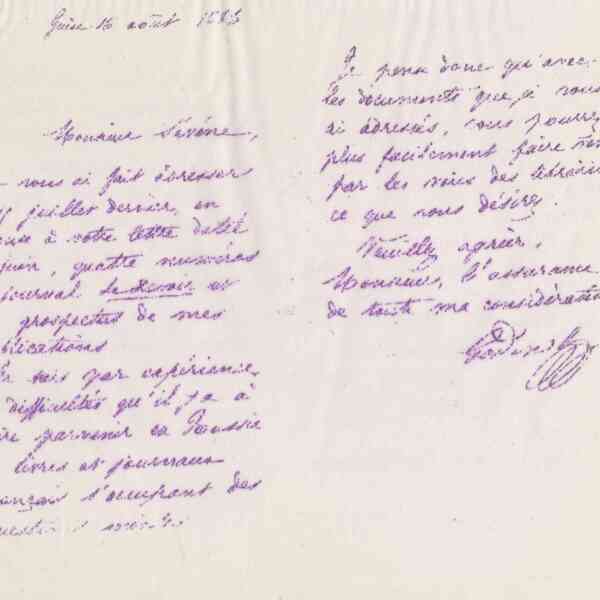 Guise 16 août 188
Monsieur Sévène,
vous ai fait adresser
juillet dernier, en
à votre lettre datée
juin, quatre numéros
journal le Devoir et
prospectus de mes
blications
sais par expérience
difficultés qu'il y a à
re parvenir en Russie
livres et journaux
ançais s'occupant des
Je pense donc qu'avec
les documents que je vous
ai adressés, vous pourrez
plus facilement faire
par les voies des librairies
ce que vous désirez.
Veuillez agréer,
Monsieur, l'assurance
de toute ma considération
Godin